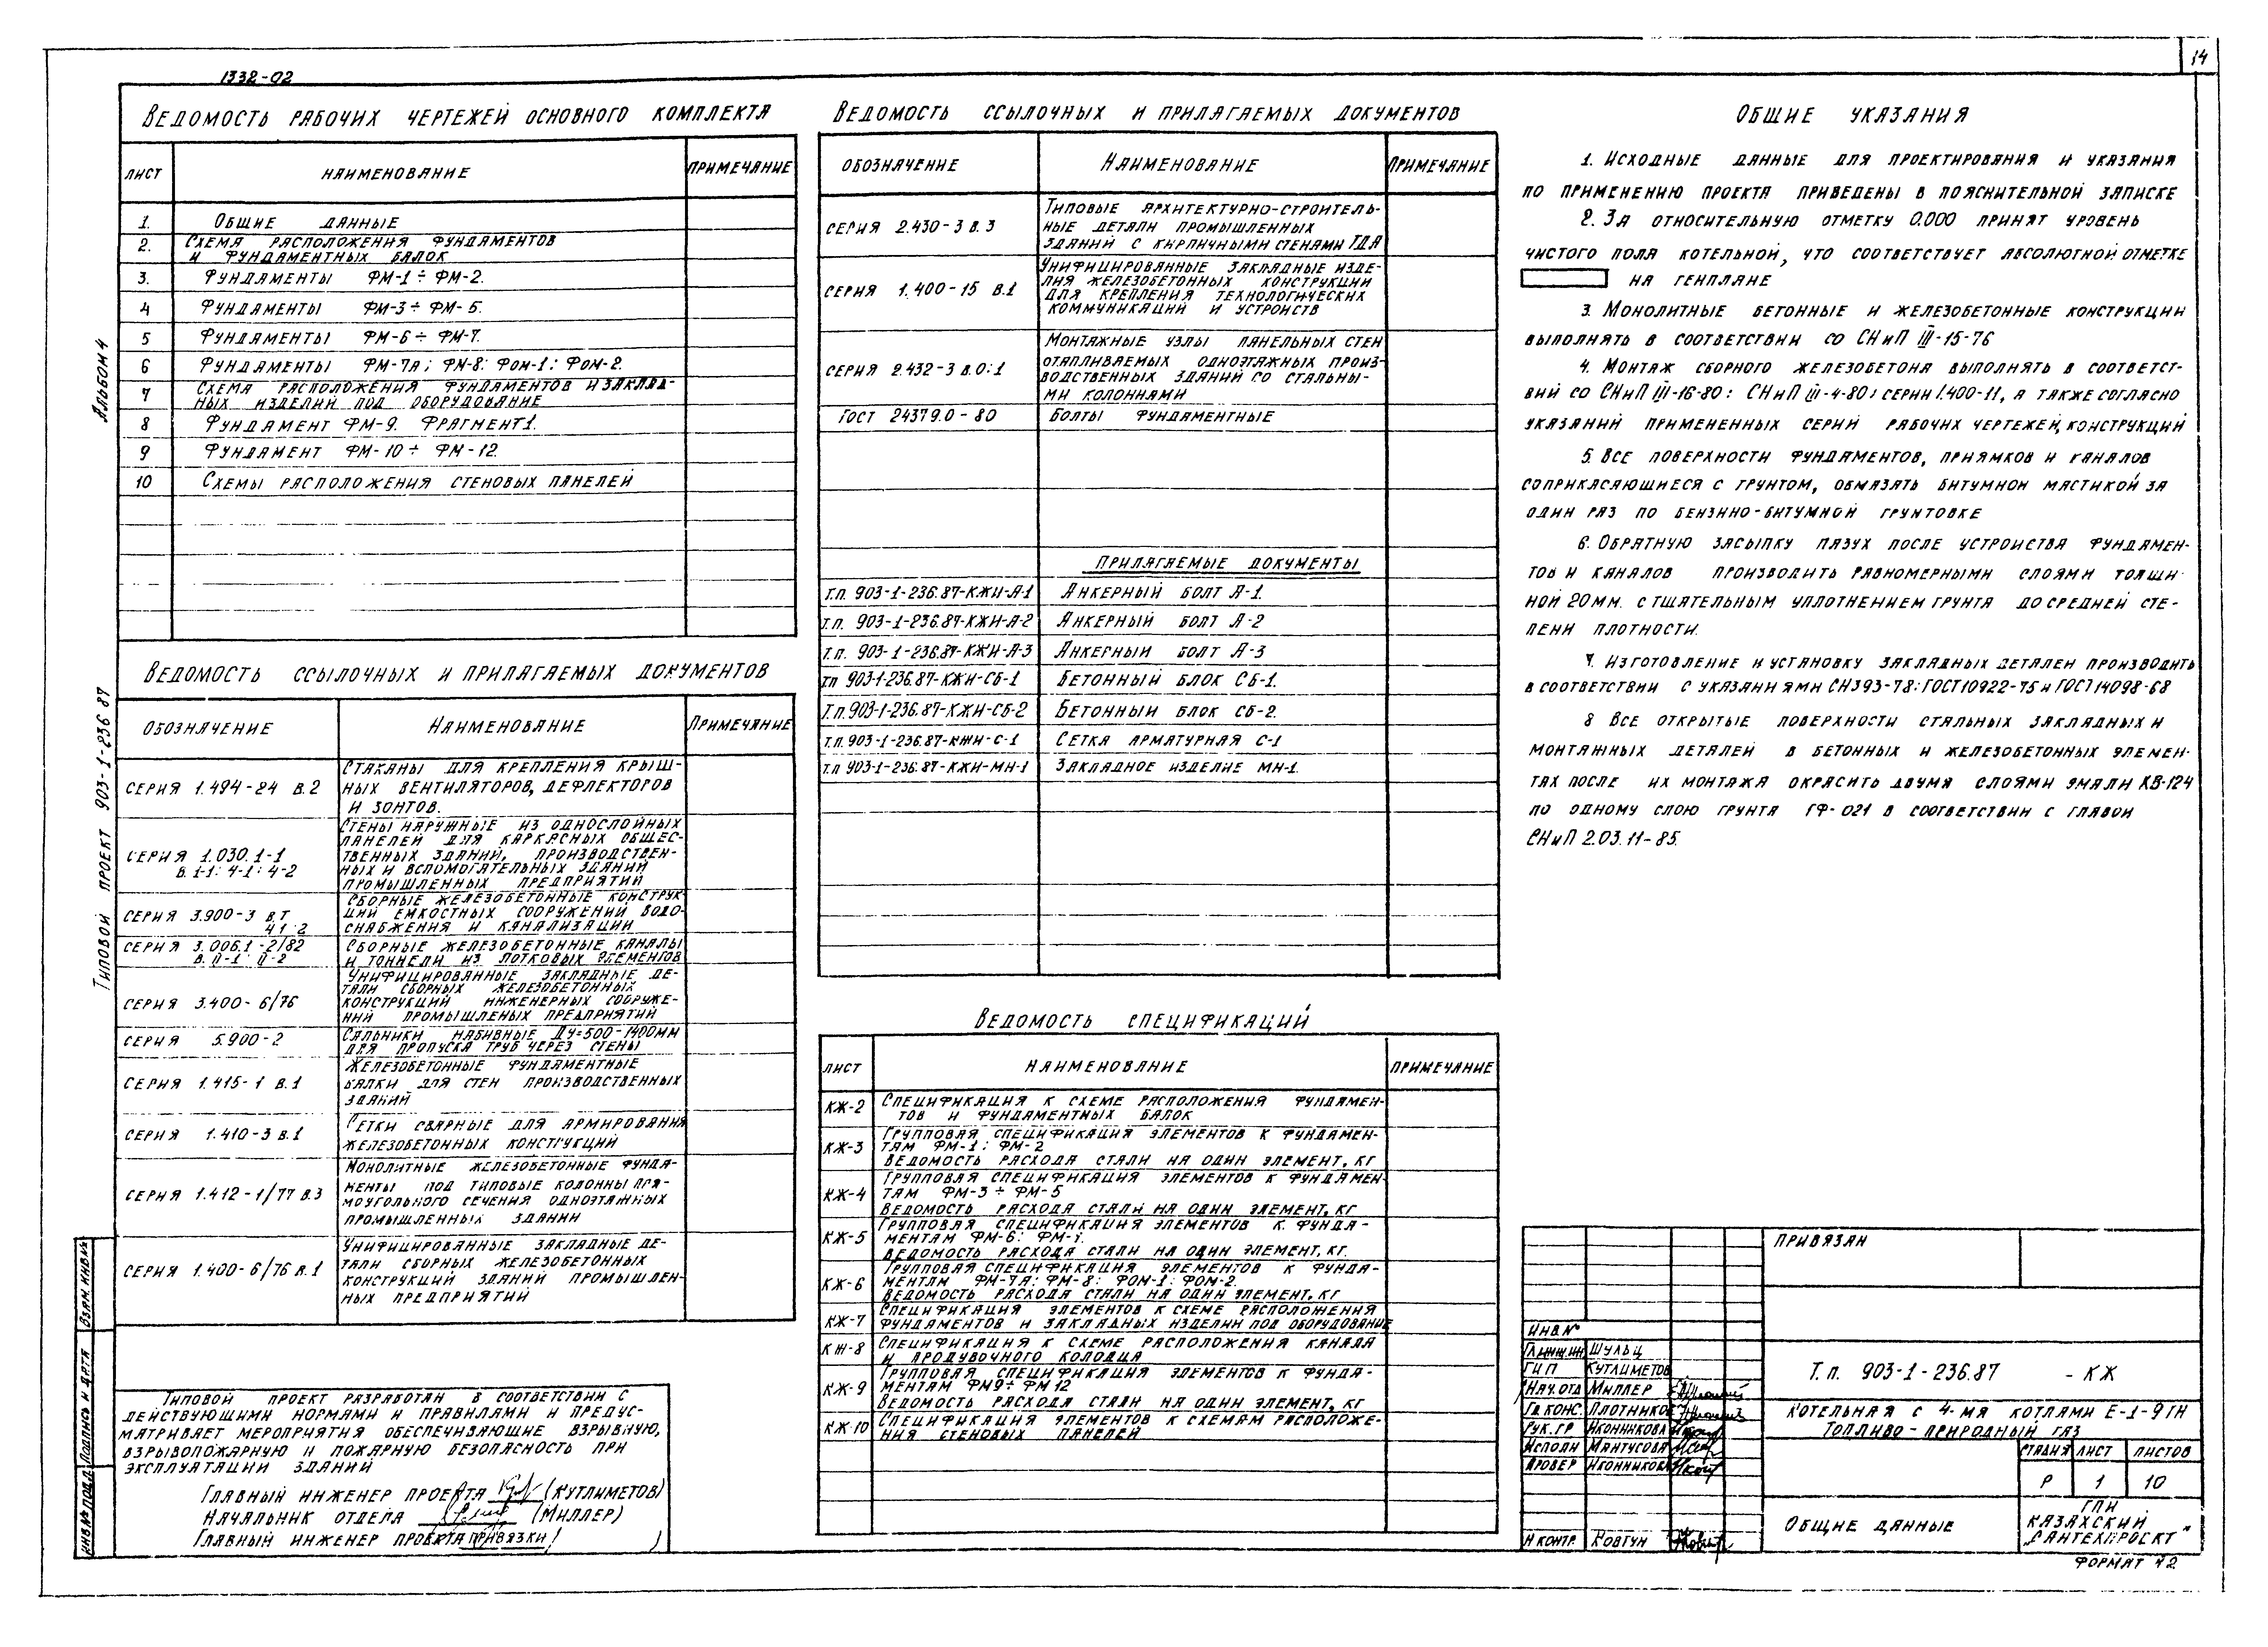 14
1332-02
Ведомость рабочих чертежей основного комплекта
лист наименование примечание
1. Общие данные
2. Схема расположения фундаментов
и фундаментных балок
3. Фундаменты ФМ-1÷ФМ-2.
4 Фундаменты ФМ-3÷ФМ-5.
5 Фундаменты ФМ-6÷ФМ-7.
6 Фундаменты ФМ-7а; ФМ-8; Фом-1; Фом-2.
7 Схема расположения фундаментов и заклад-
ных изделий под оборудование
8 Фундамент ФМ-9. Фрагмент 1.
9 Фундамент ФМ-10÷ФМ-12.
10 Схемы расположения стеновых панелей
Ведомость ссылочных и прилагаемых документов
обозначение Наименование Примечание
серия 1.494-24 в.2 Стаканы для крепления крыш-
ных вентиляторов, дефлекторов
и зонтов.
серия 1.030.1-1
в. 1-1; 4-1; 4-2
Стены наружные из однослойных
панелей для каркасных общес-
твенных зданий, производствен-
ных и вспомогательных зданий
промышленных предприятий
серия 3.900-3 в.т
4 1 2
Сборные железобетонные конструк-
ций емкостных сооружений водо-
снабжения и канализации
серия 3.006.1-2/82
в. II-1; II-2
Сборные железобетонные каналы
и тоннели из лотковых элементов
серия 3.400-6/76 Унифицированные закладные де-
тали сборных железобетонных
конструкций инженерных сооруже-
ний промышленых предприятий
серия 5.900-2 Сальники набивные Ду=500-1400мм
для пропуска труб через стены
серия 1.415-1 в.1 Железобетонные фундаментные
балки для стен производственных
зданий
серия 1.410-3 в.1 Сетки сварные для армирования
железобетонных конструкций
серия 1.412-1/77 в.3 Монолитные железобетонные фунда-
менты под типовые колонны пря-
моугольного сечения одноэтажных
промышленных зданий
серия 1.400-6/76 в.1 Унифицированные закладные де-
тали сборных железобетонных
конструкций зданий промышлен-
ных предприятий
Типовой проект разработан в соответствии с
действующими нормами и правилами и предус-
матривает мероприятия обеспечивающие взрывную,
взрывопожарную и пожарную безопасность при
эксплуатации зданий
Главный инженер проекта (Кутлиметов)
Начальник отдела (Миллер)
Главный инженер проекта привязки ( )
Альбом 4
Типовой проект 903-1-236 87
Взам. инв.№
Подпись и дата
Инв.№ подл
Ведомость ссылочных и прилагаемых документов
обозначение Наименование примечание
серия 2.430-3 в.3 Типовые архитектурно-строитель-
ные детали промышленных
зданий с кирпичными стенами ТДА
серия 1.400-15 в.1 Унифицированные закладные изде-
лия железобетонных конструкции
для крепления технологических
коммуникаций и устройств
серия 2.432-3 в.0;1 Монтажные узлы панельных стен
отапливаемых одноэтажных произ-
водственных зданий со стальны-
ми колоннами
Гост 24379.0-80 Болты фундаментные
Прилагаемые документы
т.п. 903-1-236.87-КЖИ-А-1 Анкерный болт А-1.
т.п. 903-1-236.87-КЖИ-А-2 Анкерный болт А-2
т.п. 903-1-236.87-КЖИ-А-3 Анкерный болт А-3
тп 903-1-236.87-КЖИ-СБ-1 Бетонный блок СБ-1.
Т.п. 903-1-236.87-КЖИ-СБ-2 Бетонный блок СБ-2.
т.п. 903-1-236.87-КЖИ-С-1 Сетка арматурная С-1
т.п 903-1-236.87-КЖИ-МН-1 Закладное изделие МН-1.
Ведомость спецификаций
лист наименование примечание
КЖ-2 Спецификация к схеме расположения фундамен-
тов и фундаментных балок
КЖ-3 Групповая спецификация элементов к фундамен-
там ФМ-1; ФМ-2
Ведомость расхода стали на один элемент, кг
КЖ-4 Групповая спецификация элементов к фундамен-
там ФМ-3÷ФМ-5
Ведомость расхода стали на один элемент, кг
КЖ-5 Групповая спецификация элементов к фунда-
ментам ФМ-6;
Ведомость расхода стали на один элемент, кг.
КЖ-6 Групповая спецификация элементов к фунда-
ментам ФМ-7а; ФМ-8; ФОМ-1; ФОМ-2.
Ведомость расхода стали на один элемент, кг
КЖ-7 Спецификация элементов к схеме расположения
фундаментов и закладных изделий под оборудование
КЖ-8 Спецификация к схеме расположения канала
и продувочного колодца
КЖ-9 Групповая спецификация элементов к фунда-
ментам ФМ9÷ФМ12
Ведомость расхода стали на один элемент, кг
КЖ-10 Спецификация элементов к схемам расположе-
ния стеновых панелей
Общие указания
1. Исходные данные для проектирования и указания
по применению проекта приведены в пояснительной записке
2. За относительную отметку 0.000 принят уровень
чистого пола котельной, что соответствует абсолютной отметке
на генплане
3. Монолитные бетонные и железобетонные конструкции
выполнять в соответствии со СНиП III-15-76
4. Монтаж сборного железобетона выполнять в соответст-
вий со СНиП III-16-80; СНиП III-4-80; серии 1.400-11, а также согласно
указаний примененных серий рабочих чертежей, конструкций
5. Все поверхности фундаментов, приямков и каналов
соприкасающиеся с грунтом, обмазать битумной мастикой за
один раз по бензино-битумной грунтовке
6. Обратную засыпку пазух после устройства фундамен-
тов и каналов производить равномерными слоями толщи-
ной 20мм. с тщательным уплотнением грунта до средней сте-
пени плотности.
7. Изготовление и установку закладных деталей производить
в соответствии с указаниями СН393-78; ГОСТ10922-75 и ГОСТ14098-68
8 Все открытые поверхности стальных закладных и
монтажных деталей в бетонных и железобетонных элемен-
тах после их монтажа окрасить двумя слоями эмали ХВ-124
по одному слою грунта ГФ-021 в соответствии с главой
СНиП 2.03.11-85.
привязан
инв.№
Гл.инж.ин Шульц
ГИП Кутлиметов
Нач.отд Миллер
Гл.конс. Плотников
Рук.гр Иконникова
Исполн Мантусова
Провер Иконникова
Н контр. Ковтун
Т.п. 903-1-236.87 - КЖ
Котельная с 4-мя котлами Е-1-9ГН
Топливо-природный газ
стадия лист листов
Р 1 10
Общие данные
ГПИ
Казахский
„Сантехпроект"
Формат 42